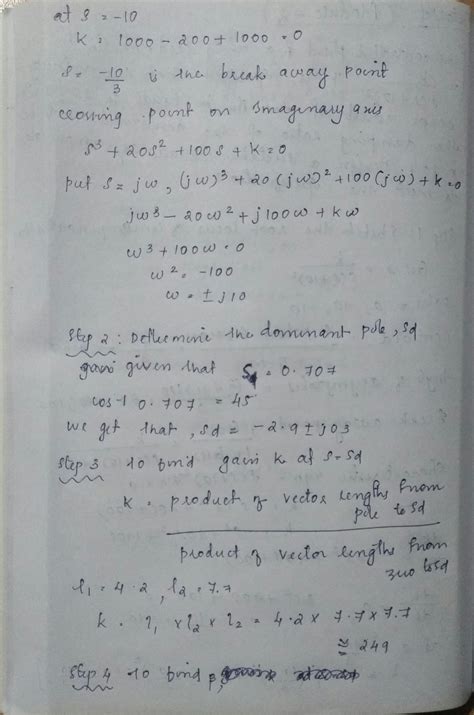 at s = -10
K = 1000 - 200 + 1000 = 0
s = -10/3 is the break away point
crossing point on Imaginary axis
s³ + 20s² + 100s + k = 0
put s = jω, (jω)³ + 20(jω)² + 100(jω) + k = 0
jω³ - 20ω² + j100ω + kω
ω³ + 100ω = 0
ω² = -100
ω = ± j10
Step 2 : Determine the dominant pole, Sd
given that = 0.707
cos-1 0.707 = 45
we get that, Sd = -2.9 ± j03
Step 3 to find gain k at s = sd
K = product of vector lengths from pole to Sd
product of vector lengths from zero to Sd
l₁ = 4.2, l₂ = 7.7
K = l₁ x l₂ x l₂ = 4.2 x 7.7 x 7.7
≅ 249
Step 4 to find